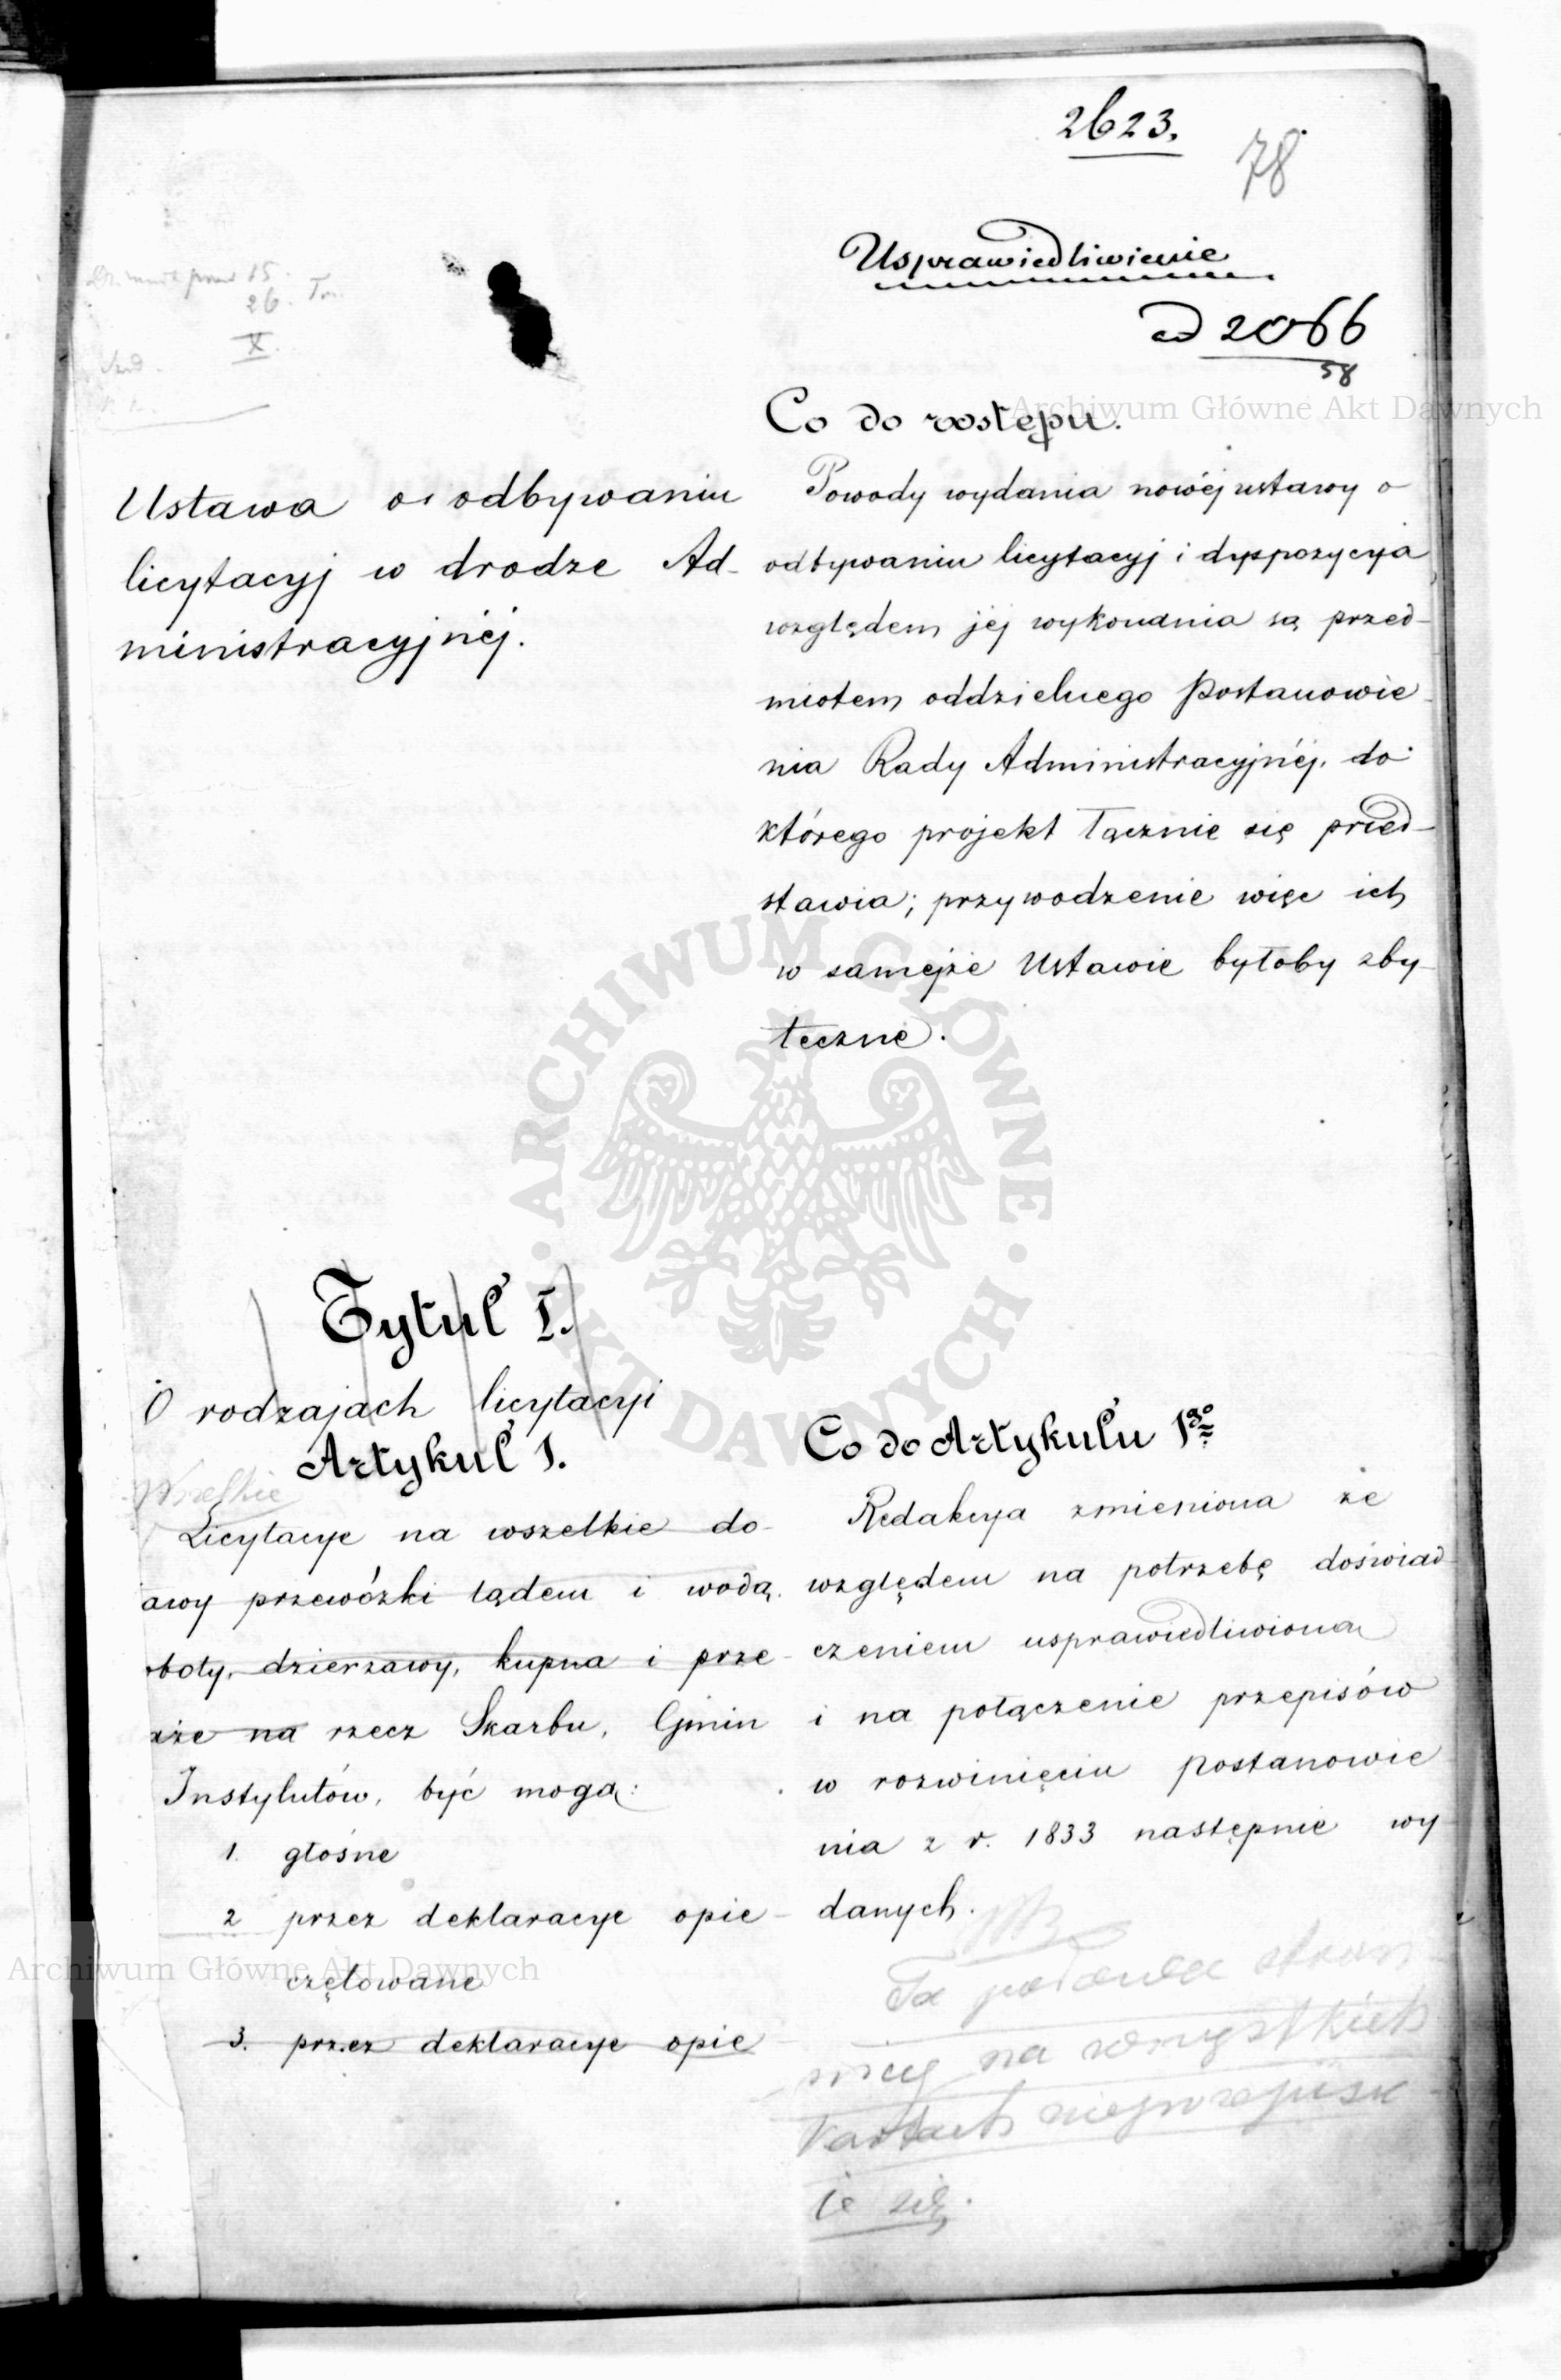 2623.
78
Usprawiedliwienie
ad 2066
58
Co do wstępu.
Ustawa o odbywaniu
licytacyj w drodze Ad-
ministracyjnéj.
Powody wydania nowéj ustawy o
odbywaniu licytacyj i dyspozycyja
względem jéj wykonania są przed-
miotem oddzielnego Postanowie-
nia Rady Administracyjnéj, do
którego projekt łącznie się przed-
stawia; przywodzenie więc ich
w samejże Ustawie byłoby zby-
teczne.
Tytuł I.
O rodzajach licytacyi
Artykuł 1.
Wszelkie
Licytacye na wszelkie do-
awy przewózki lądem i wodą,
oboty, dzierzawy, kupna i prze-
aże na rzecz Skarbu, Gmin
Instytutów, być mogą:
1. głośne
2 przez deklaracye opie-
czętowane
3. przez deklaracye opie
Co do Artykułu 1go
Redakcya zmieniona ze
względem na potrzebę doświad-
czeniem usprawiedliwioną
i na połączenie przepisów
w rozwinięciu postanowie
nia z r. 1833 następnie wy
danych.
NB
Ta połowa stron
nicy na wszystkich
kartach nieprzepisu
je się.
Archiwum Główne Akt Dawnych
Archiwum Główne Akt Dawnych
ARCHIWUM GŁÓWNE AKT DAWNYCH